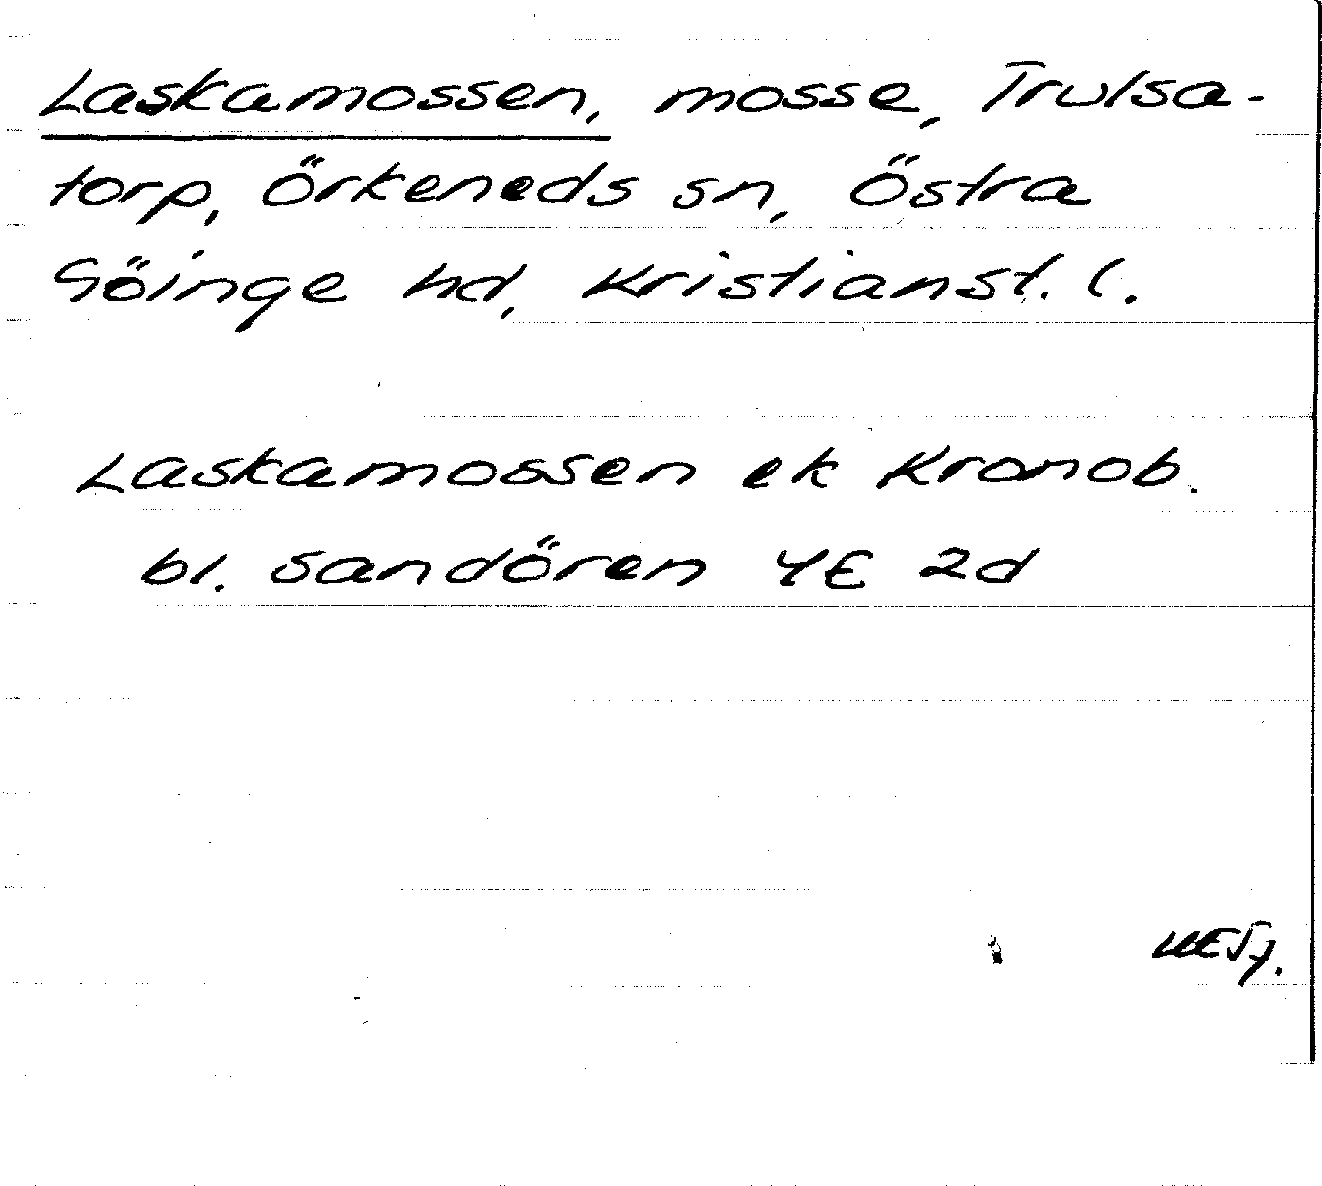 Laskamossen, mosse, Trulsa-
torp, Örkeneds sn, Östra
Göinge hd, Kristianst. l.
Laskamossen ek Kronob.
bl. Sandören 4E 2d